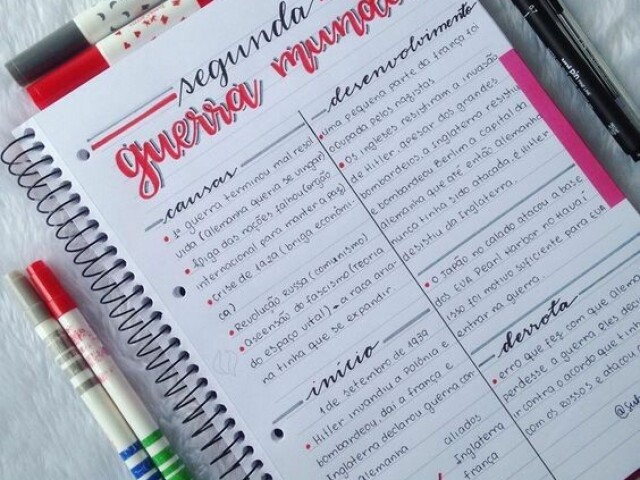 segunda
guerra mundi
causas
• 1ª guerra terminou mal resol
vida (alemanha queria se vingar)
• liga das nações falhou (orgão
internacional para manter a paz)
• Crise de 1929 (briga econômi
ca)
• Revolução russa (comunismo)
• Ascensão do fascismo (teoria
do espaço vital) → a raça aria
na tinha que se expandir.
início
1 de setembro de 1939
• Hitler invandiu a Polônia e
bombardeou, daí a frança e
Inglaterra declarou guerra con
alemanha
aliados
Inglaterra
frança
desenvolvimento
• uma pequena parte da frança foi
ocupada pelos nazistas
• os ingleses resistiram a invasão
de Hitler, apesar dos grandes
bombardeios a Inglaterra resistiu
e bombardeou Berlim a capital da
alemanha que até então alemanha
nunca tinha sido atacada, e Hitler
desistiu da Inglaterra.
• o Japão no calado atacou a base
dos EUA Pearl Harbor no Havaí.
isso foi motivo suficiente para EUA
entrar na guerra
derrota
• erro que fez com que Alem
perdesse a guerra. Eles deci
ir contra o acordo que tin
com os russos e atacou